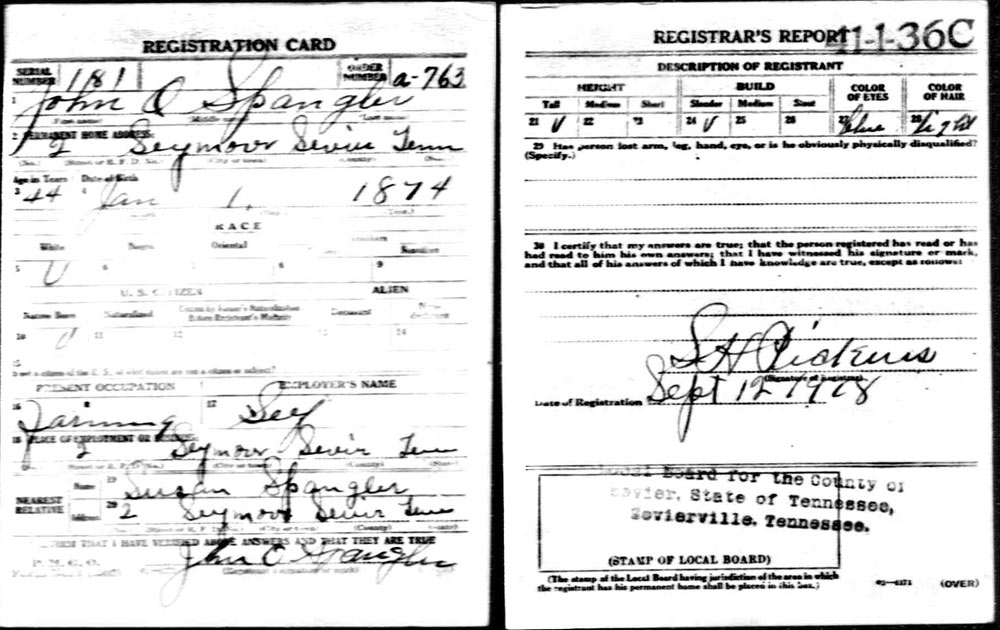 REGISTRATION CARD
SERIAL NUMBER 181 ORDER NUMBER a-763
1 John O Spangler
First name Middle name Last name
2 PERMANENT HOME ADDRESS:
2 Seymour Sevier Tenn
(No.) (Street or R. F. D. No.) (City or town) (County) (State)
Age in Years Date of Birth
3 44 4 Jan 1. 1874
(Year.)
RACE
White Negro Oriental
5 V 6 7 8 9
U. S. CITIZEN ALIEN
Native Born Naturalized Citizen by Father's Naturalization Before Registrant's Majority Declarant
10 V 11 12 13 14
15
If not a citizen of the U. S., of what nation are you a citizen or subject?
PRESENT OCCUPATION EMPLOYER'S NAME
16 Farming 17 Self
18 PLACE OF EMPLOYMENT OR BUSINESS:
2 Seymour Sevier Tenn
(Street or R. F. D. No.) (City or town) (County) (State)
NEAREST RELATIVE Name 19 Susan Spangler
Address 20 2 Seymour Sevier Tenn
(Street or R. F. D. No.) (City or town) (County) (State)
I AFFIRM THAT I HAVE VERIFIED ABOVE ANSWERS AND THAT THEY ARE TRUE
P. M. G. O.
John O Spangler
(Registrant's signature or mark)
REGISTRAR'S REPORT 41-1-36C
DESCRIPTION OF REGISTRANT
HEIGHT BUILD COLOR OF EYES COLOR OF HAIR
Tall Medium Short Slender Medium Stout
21 V 22 23 24 V 25 26 27 blue 28 Light
29 Has person lost arm, leg, hand, eye, or is he obviously physically disqualified?
(Specify.)
30 I certify that my answers are true; that the person registered has read or has
had read to him his own answers; that I have witnessed his signature or mark,
and that all of his answers of which I have knowledge are true, except as follows:
S H Pickens
(Signature of Registrar)
Date of Registration Sept 12 1918
Local Board for the County of
Sevier, State of Tennessee,
Sevierville, Tennessee.
(STAMP OF LOCAL BOARD)
(The stamp of the Local Board having jurisdiction of the area in which
the registrant has his permanent home shall be placed in this box.)
03—6171 (OVER)